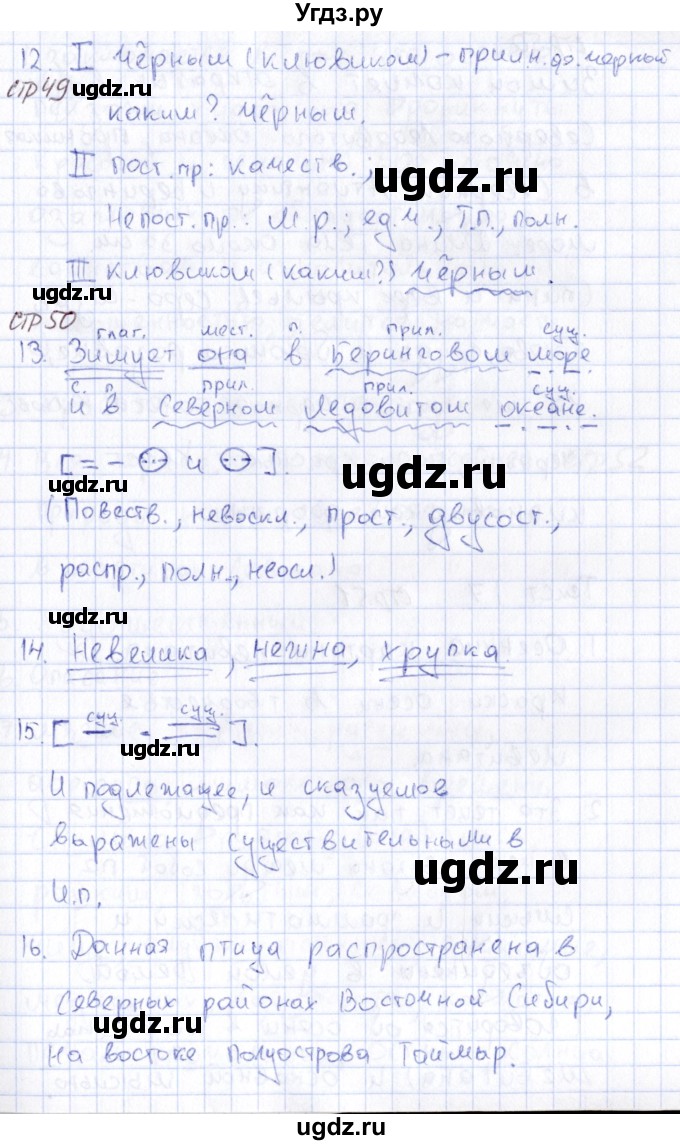 Угдз.ру
12. I Чёрным (клювиком) – прил. н.ф. чёрный
стр 49
каким? чёрным.
II Пост. пр: качеств.;
Непост. пр.: м.р.; ед.ч., Т.п., полн.
III клювиком (каким?) чёрным.
стр 50
глаг. мест. п. прил. сущ.
13. Зимует она в Беринговом море
с. п. прил. прил. сущ.
и в Северном Ледовитом океане.
[= – и ].
(Повеств., невоскл., прост., двусост.,
распр., полн., неосл.)
14. Невелика, нежна, хрупка.
сущ. сущ.
15. [ — - = ].
И подлежащее, и сказуемое
выражены существительными в
И.п.
16. Данная птица распространена в
Северных районах Восточной Сибири,
на востоке полуострова Таймыр.
ugdz.ru
ugdz.ru
ugdz.ru
ugdz.ru
ugdz.ru
ugdz.ru
ugdz.ru
ugdz.ru
ugdz.ru
ugdz.ru
ugdz.ru